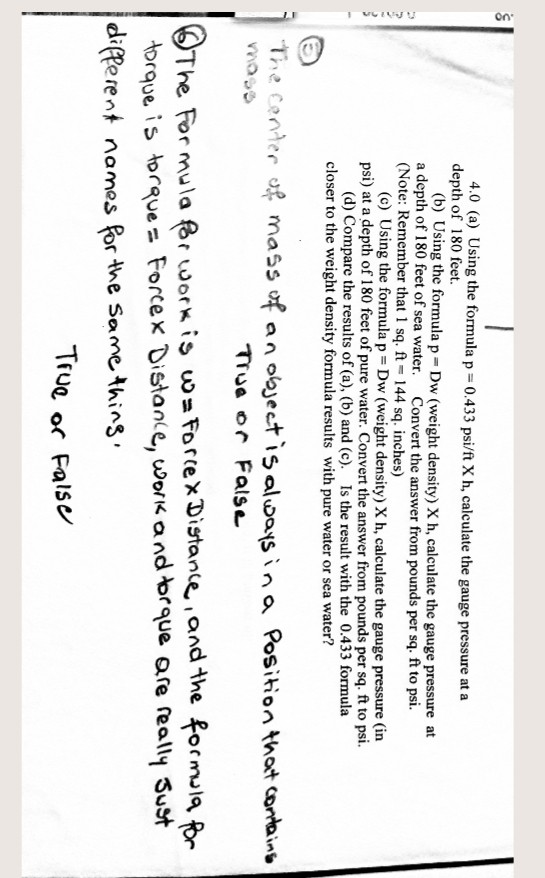 4.0 (a) Using the formula p = 0.433 psi/ft X h, calculate the gauge pressure at a
depth of 180 feet.
(b) Using the formula p = Dw (weight density) X h, calculate the gauge pressure at
a depth of 180 feet of sea water. Convert the answer from pounds per sq. ft to psi.
(Note: Remember that 1 sq. ft = 144 sq. inches)
(c) Using the formula p = Dw (weight density) X h, calculate the gauge pressure (in
psi) at a depth of 180 feet of pure water. Convert the answer from pounds per sq. ft to psi.
(d) Compare the results of (a), (b) and (c). Is the result with the 0.433 formula
closer to the weight density formula results with pure water or sea water?
⑤
The center of mass of an object is always in a Position that contains
mass
True or False
⑥ The Formula for work is w = Force x Distance, and the formula for
torque is torque = Force x Distance, work and torque are really Just
different names for the same thing.
True or False